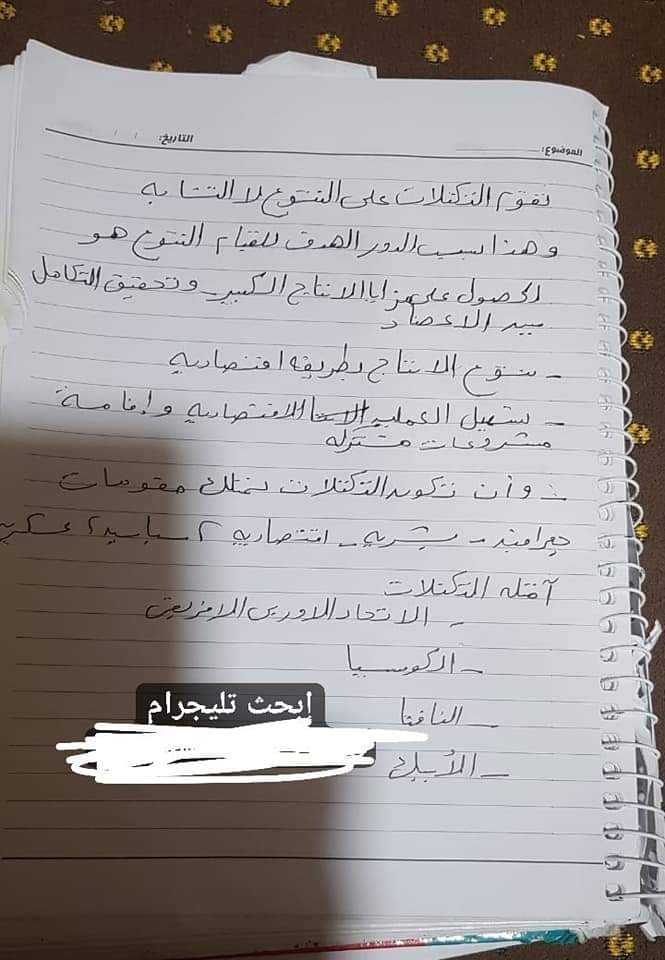 الموضوع:
التاريخ: / /
تقوم التكتلات على التنوع لا التشابه
وهذا بسبب الدور الهدف للقيام التنوع هو
الحصول على مزايا الانتاج الكبير وتحقيق التكامل
بين
- تنوع الانتاج بطريقة اقتصادية
- تسهيل العمليه الاقتصاديه وإقامة
مشروعات مشتركه
- وأن تكون التكتلات تمتلك مقومات
جغرافيه - بشريه - اقتصاديه
أمثله التكتلات
- الاتحاد الاوربى الافريقى
- الكوميسا
- النافتا
- الأبيك
إبحث تليجرام